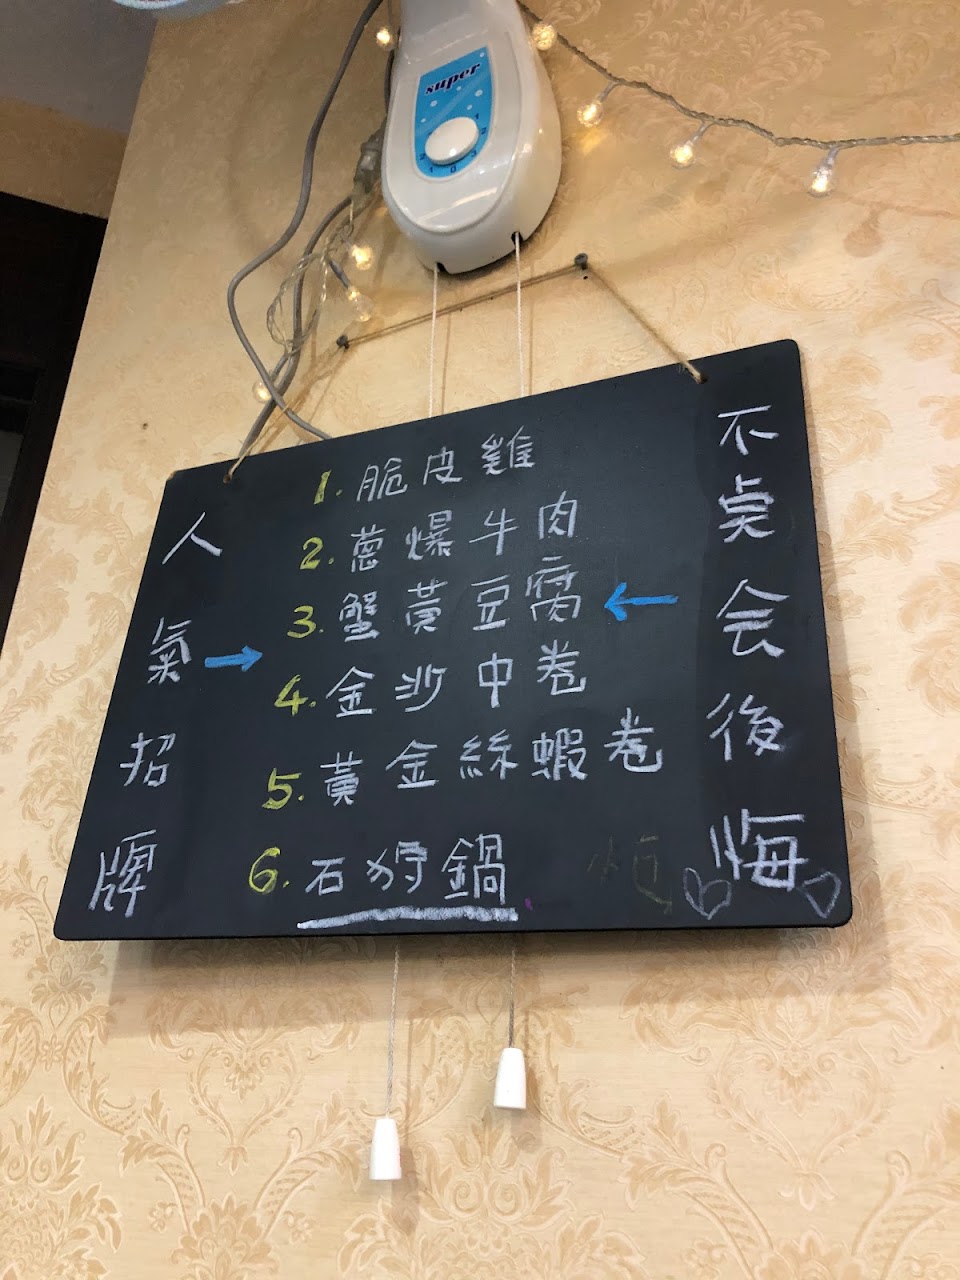 super
人氣招牌
1. 脆皮雞
2. 蔥爆牛肉
3. 蟹黃豆腐
4. 金沙中卷
5. 黃金絲蝦卷
6. 石狩鍋
不点会後悔